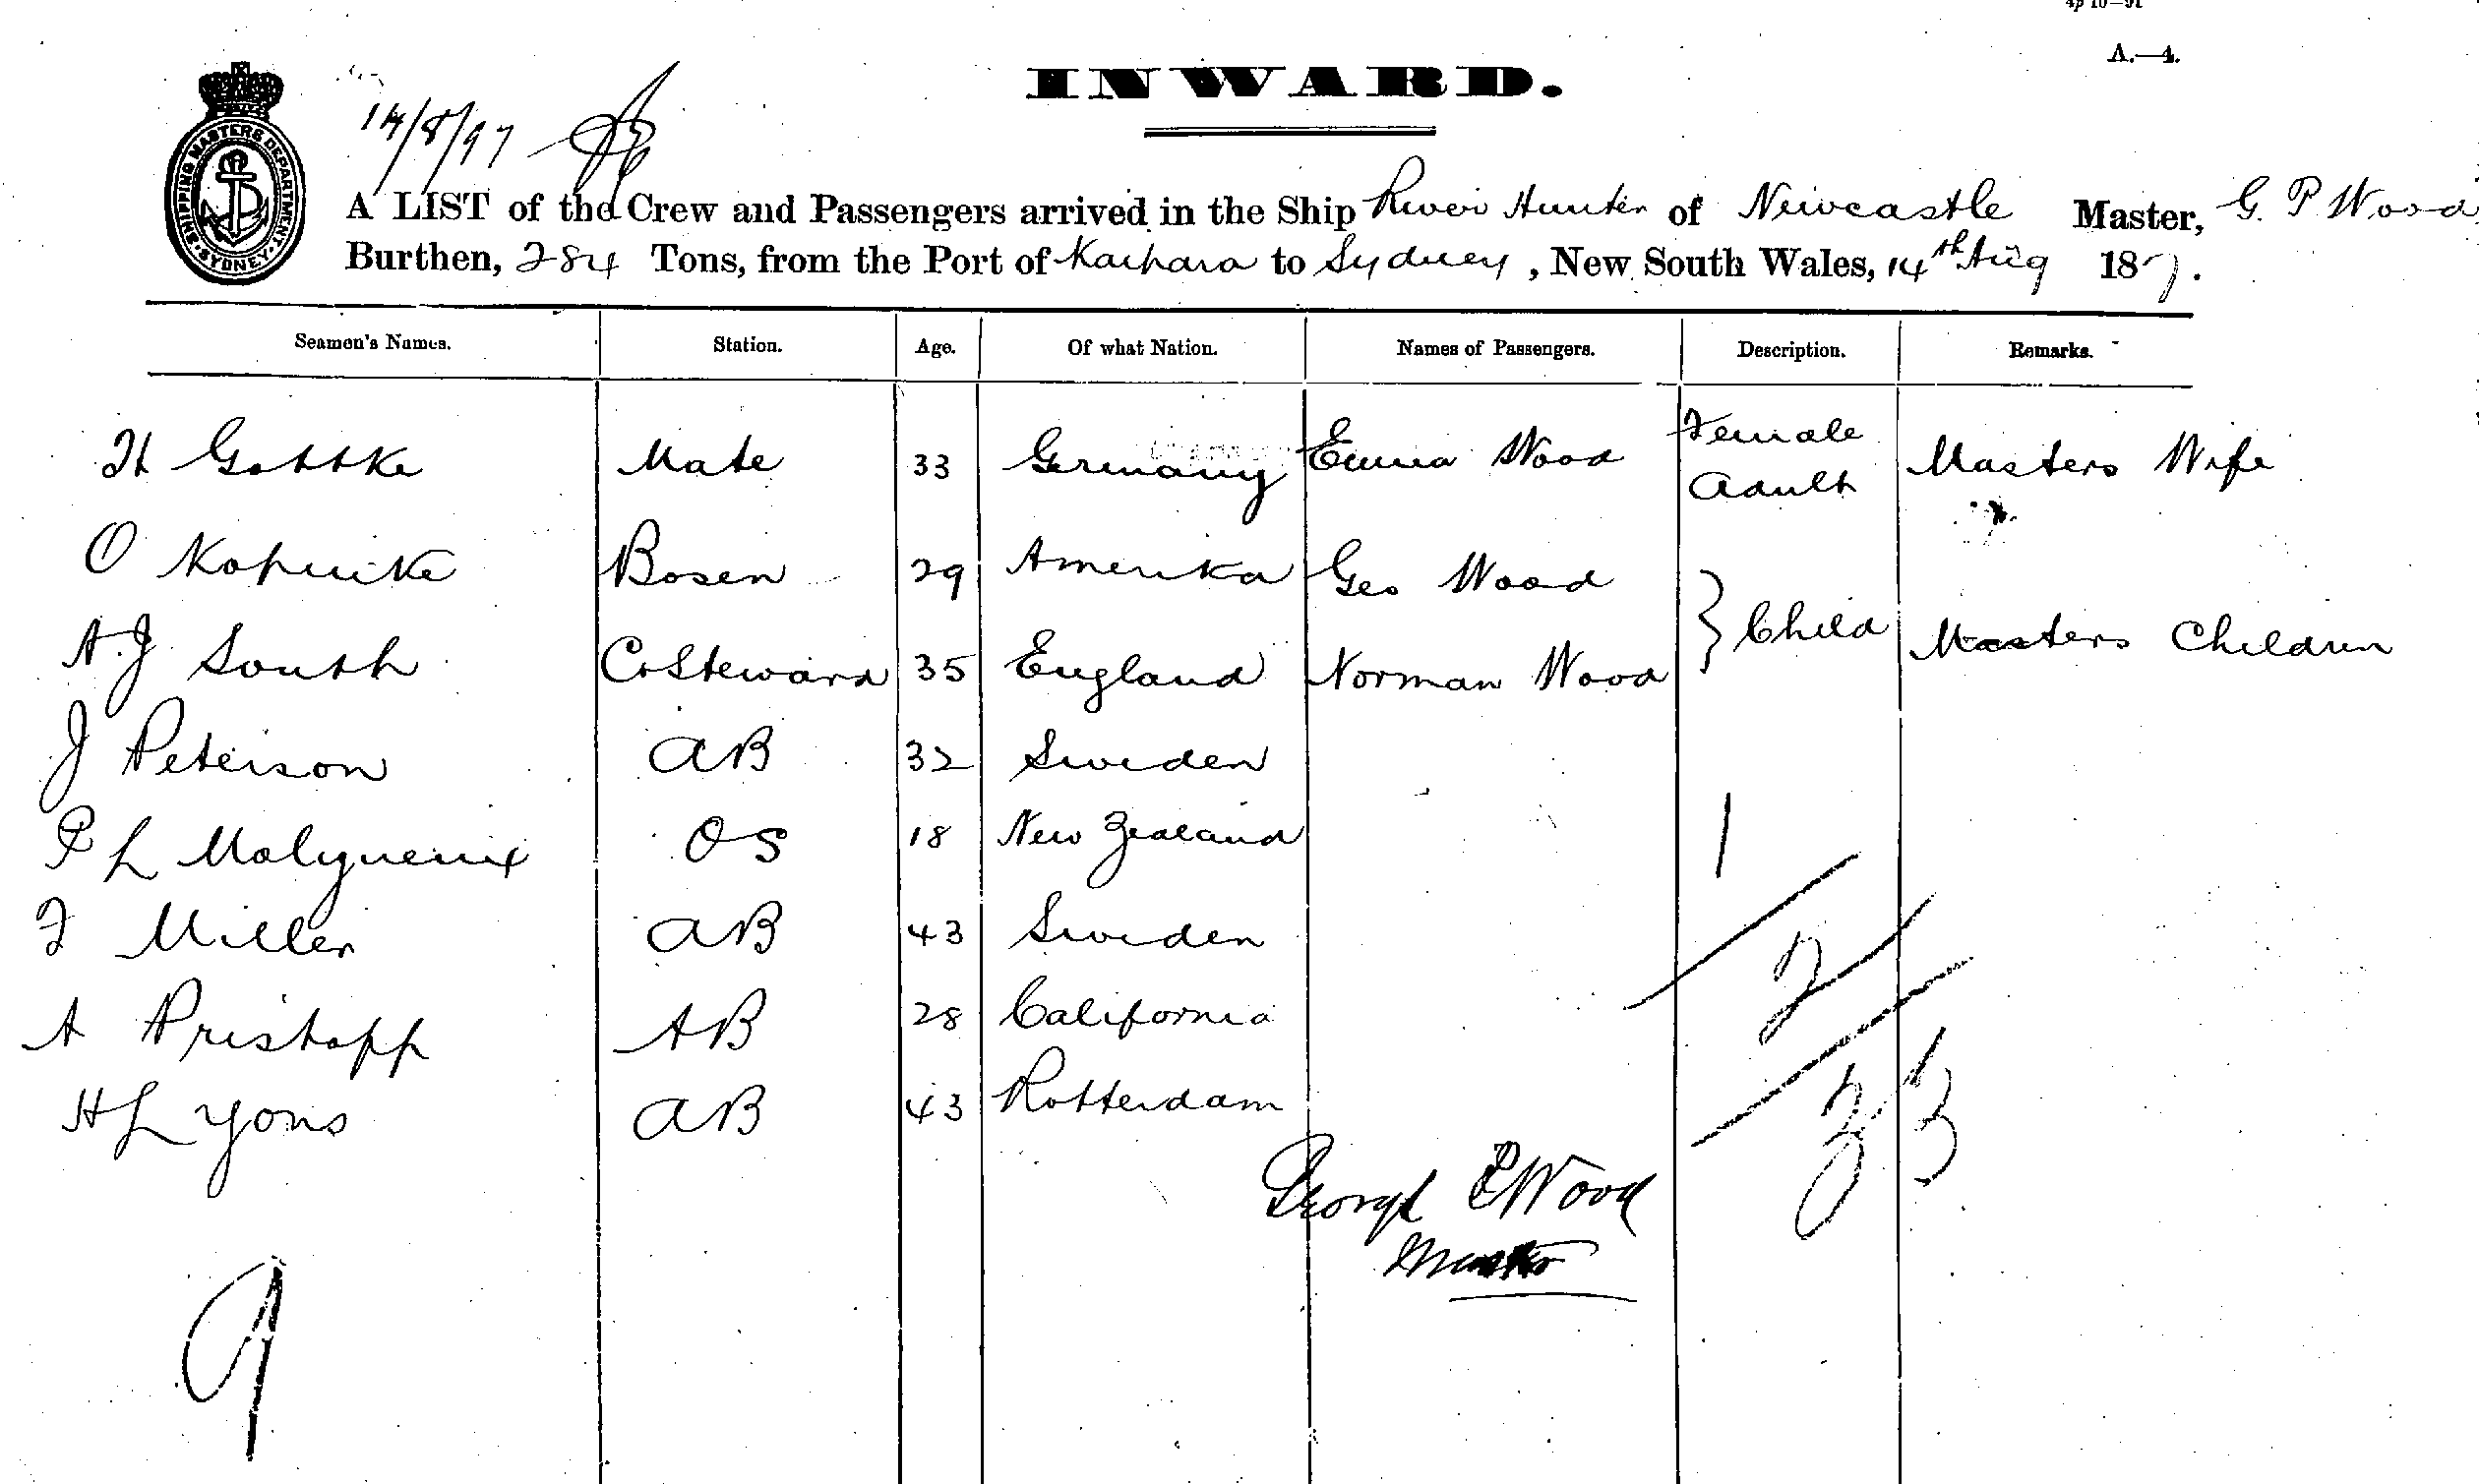 4p 10—91
A.—4.
INWARD.
SHIPPING MASTERS DEPARTMENT. SYDNEY.
14/8/97
A LIST of the Crew and Passengers arrived in the Ship River Hunter of Newcastle Master, G. P Wood
Burthen, 284 Tons, from the Port of Kaipara to Sydney, New South Wales, 14th Aug 187.
Seamen's Names. Station. Age. Of what Nation. Names of Passengers. Description. Remarks.
H Gottke Mate 33 Germany Emma Wood Female Adult Masters Wife
O Kopuike Bosen 29 Amerika Geo Wood
} Child Masters Children
A.J South C & Steward 35 England Norman Wood
J Peterson AB 32 Sweden
P L Molyneux OS 18 New Zealand
1
F Miller AB 43 Sweden
2
A Pristopp AB 28 California
H Lyons AB 43 Rotterdam
3 3
George P Wood
Master
9